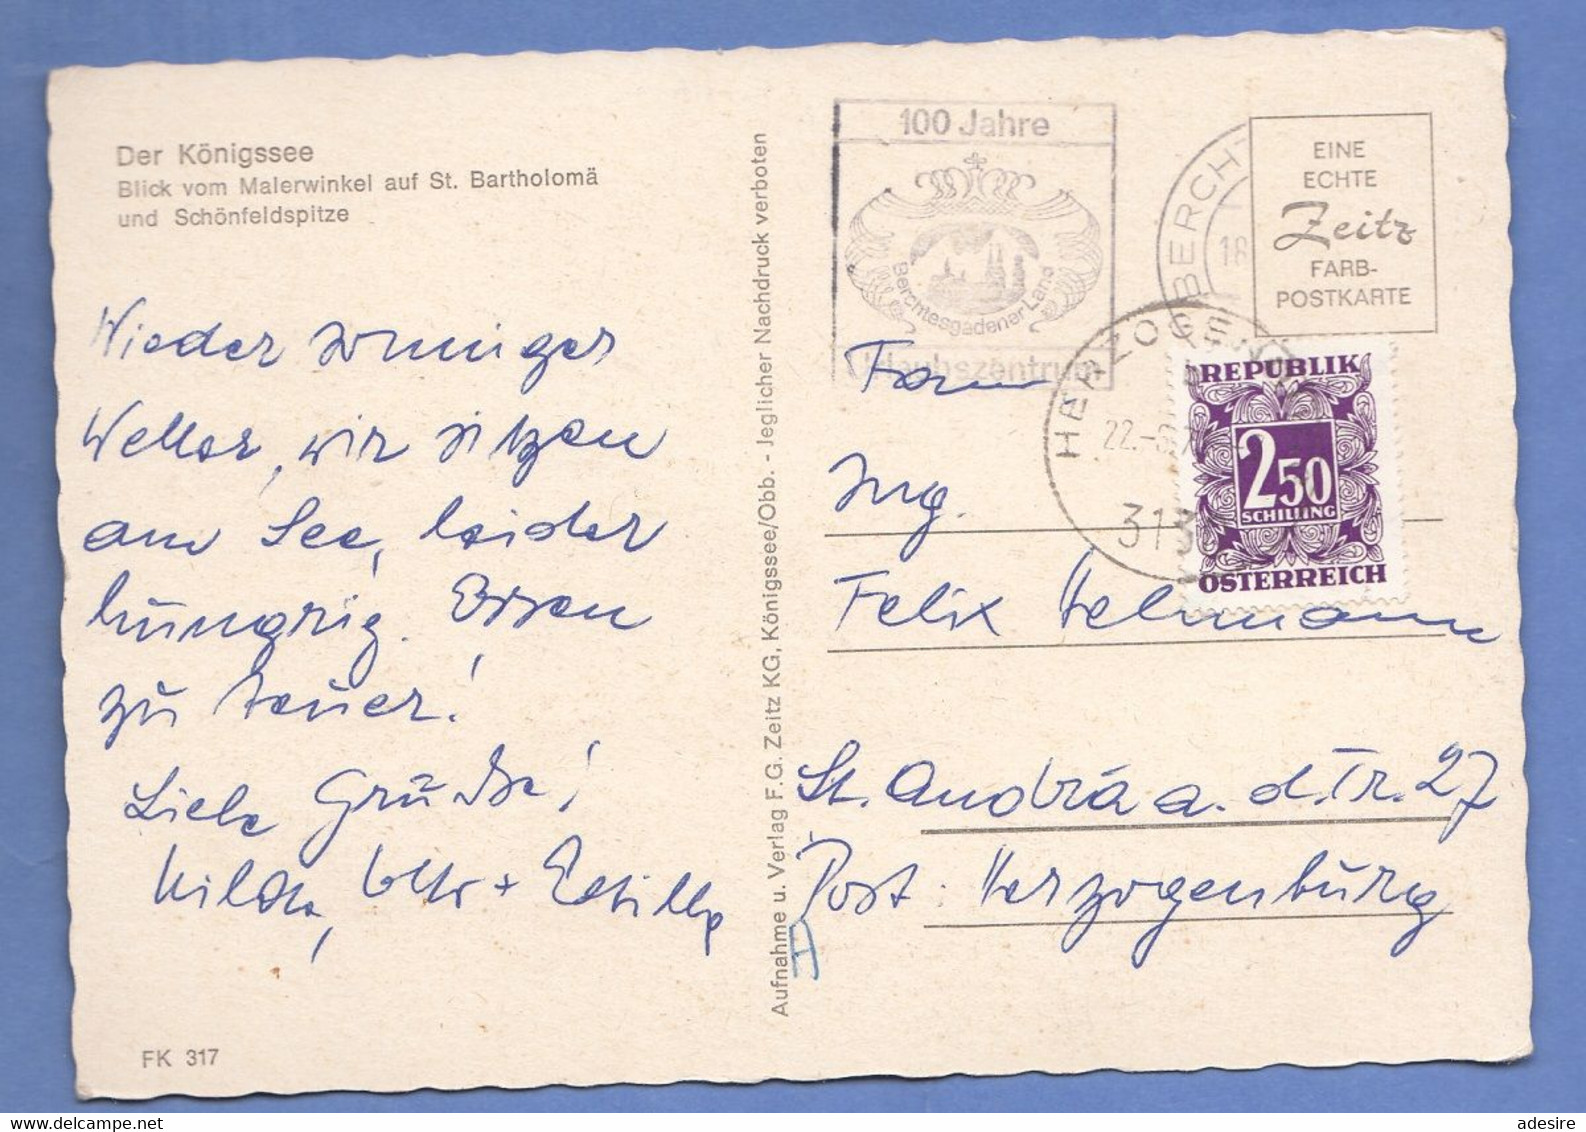 Der Königssee
Blick vom Malerwinkel auf St. Bartholomä
und Schönfeldspitze
Wieder sonniger
Wetter, wir sitzen
am See, leider
hungrig. Essen
zu teuer!
Liebe Grüsse!
Hilda, +
FK 317
Aufnahme u. Verlag F.G. Zeitz KG, Königssee/Obb. - Jeglicher Nachdruck verboten
100 Jahre
Berchtesgadener Land
Urlaubszentrum
BERCHT
18
EINE
ECHTE
Zeitz
FARB-
POSTKARTE
HERZOGENB
22.-
313
REPUBLIK
2 50
SCHILLING
ÖSTERREICH
Fam
Ing.
Felix Helmmann
St. Andrä a. d. Tr. 27
Post: Herzogenburg
H
adesire